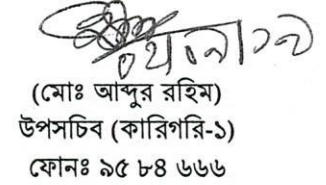 (মোঃ আব্দুর রহিম)
উপসচিব (কারিগরি-১)
ফোনঃ ৯৫ ৮৪ ৬৬৬